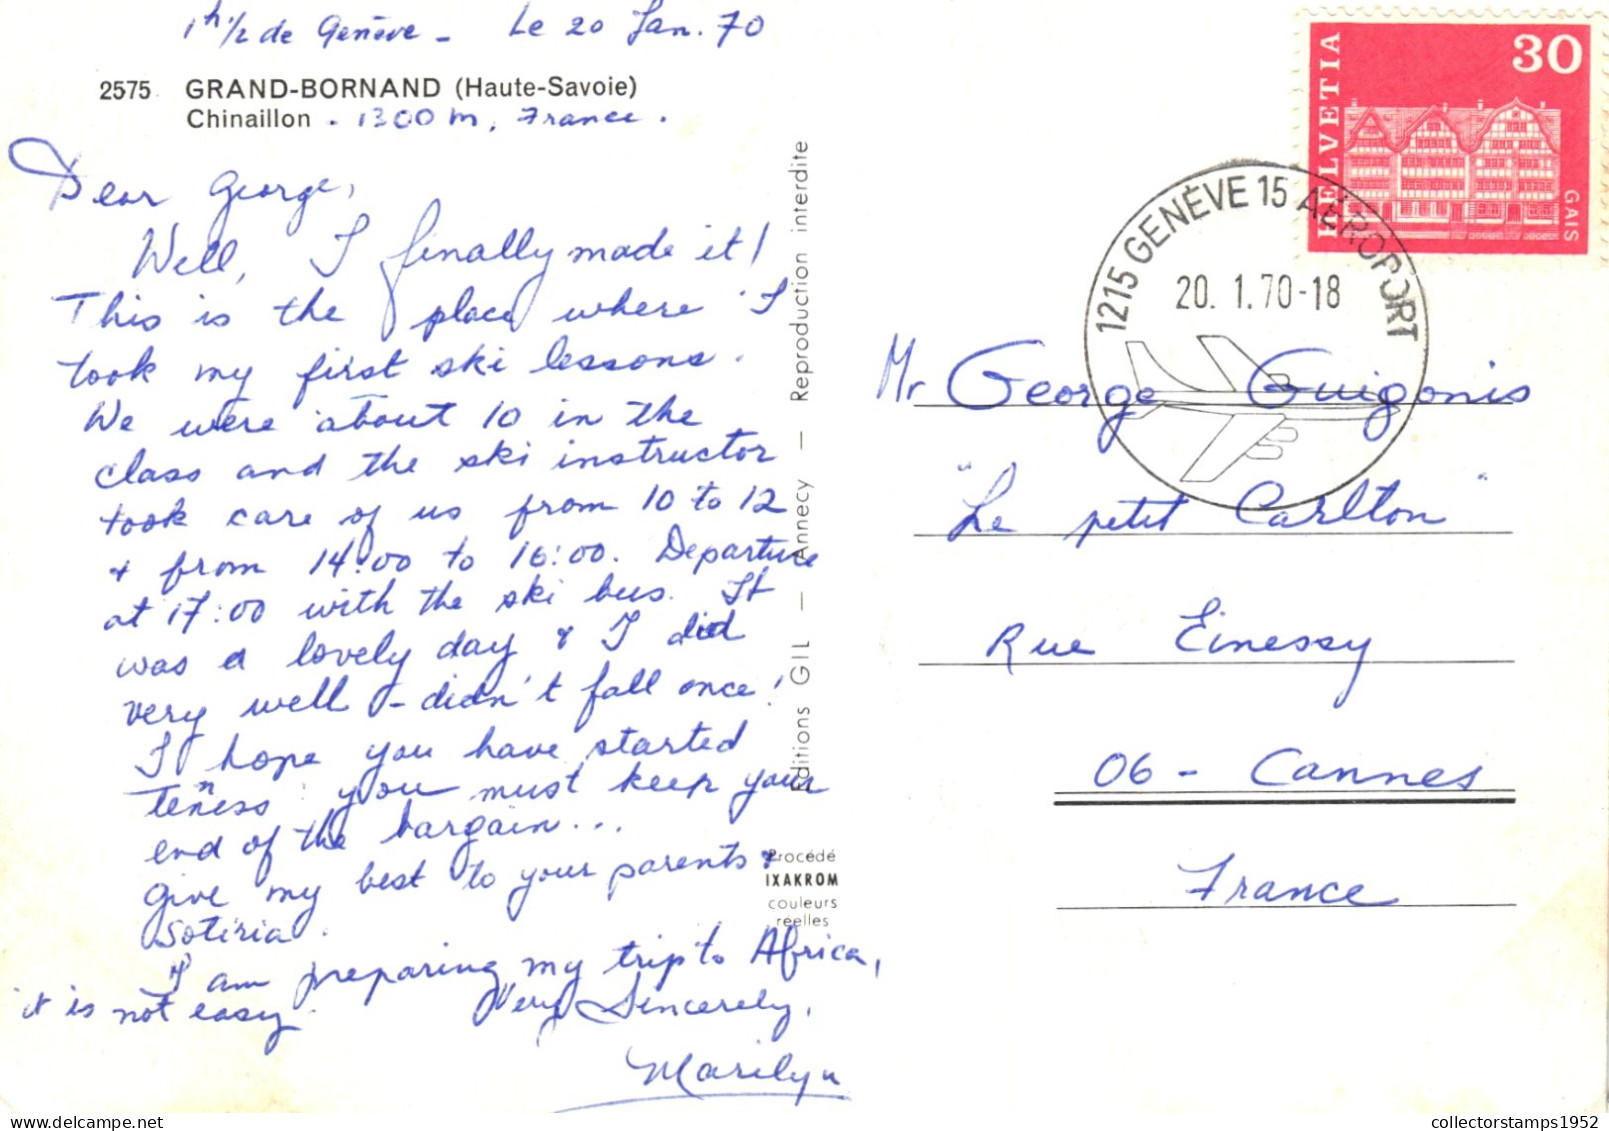 1h 1/2 de Genève - Le 20 Jan. 70
2575 GRAND-BORNAND (Haute-Savoie)
Chinaillon - 1300 m, France.
Dear George,
Well, I finally made it!
This is the place where I
took my first ski lessons.
We were about 10 in the
class and the ski instructor
took care of us from 10 to 12
+ from 14:00 to 16:00. Departure
at 17:00 with the ski bus. It
was a lovely day & I did
very well - didn't fall once!
I hope you have started
tenness you must keep your
end of the bargain...
Give my best to your parents &
Sotiria.
I am preparing my trip to Africa,
it is not easy.
Very Sincerely,
Marilyn
Editions GIL — Annecy — Reproduction interdite
Procédé
IXAKROM
couleurs
réelles
HELVETIA
30
GAIS
1215 GENÈVE 15 AÉROPORT
20. 1.70-18
Mr George Guigonis
"Le petit Carlton"
Rue Einessy
06 - Cannes
France
collectorstamps1952